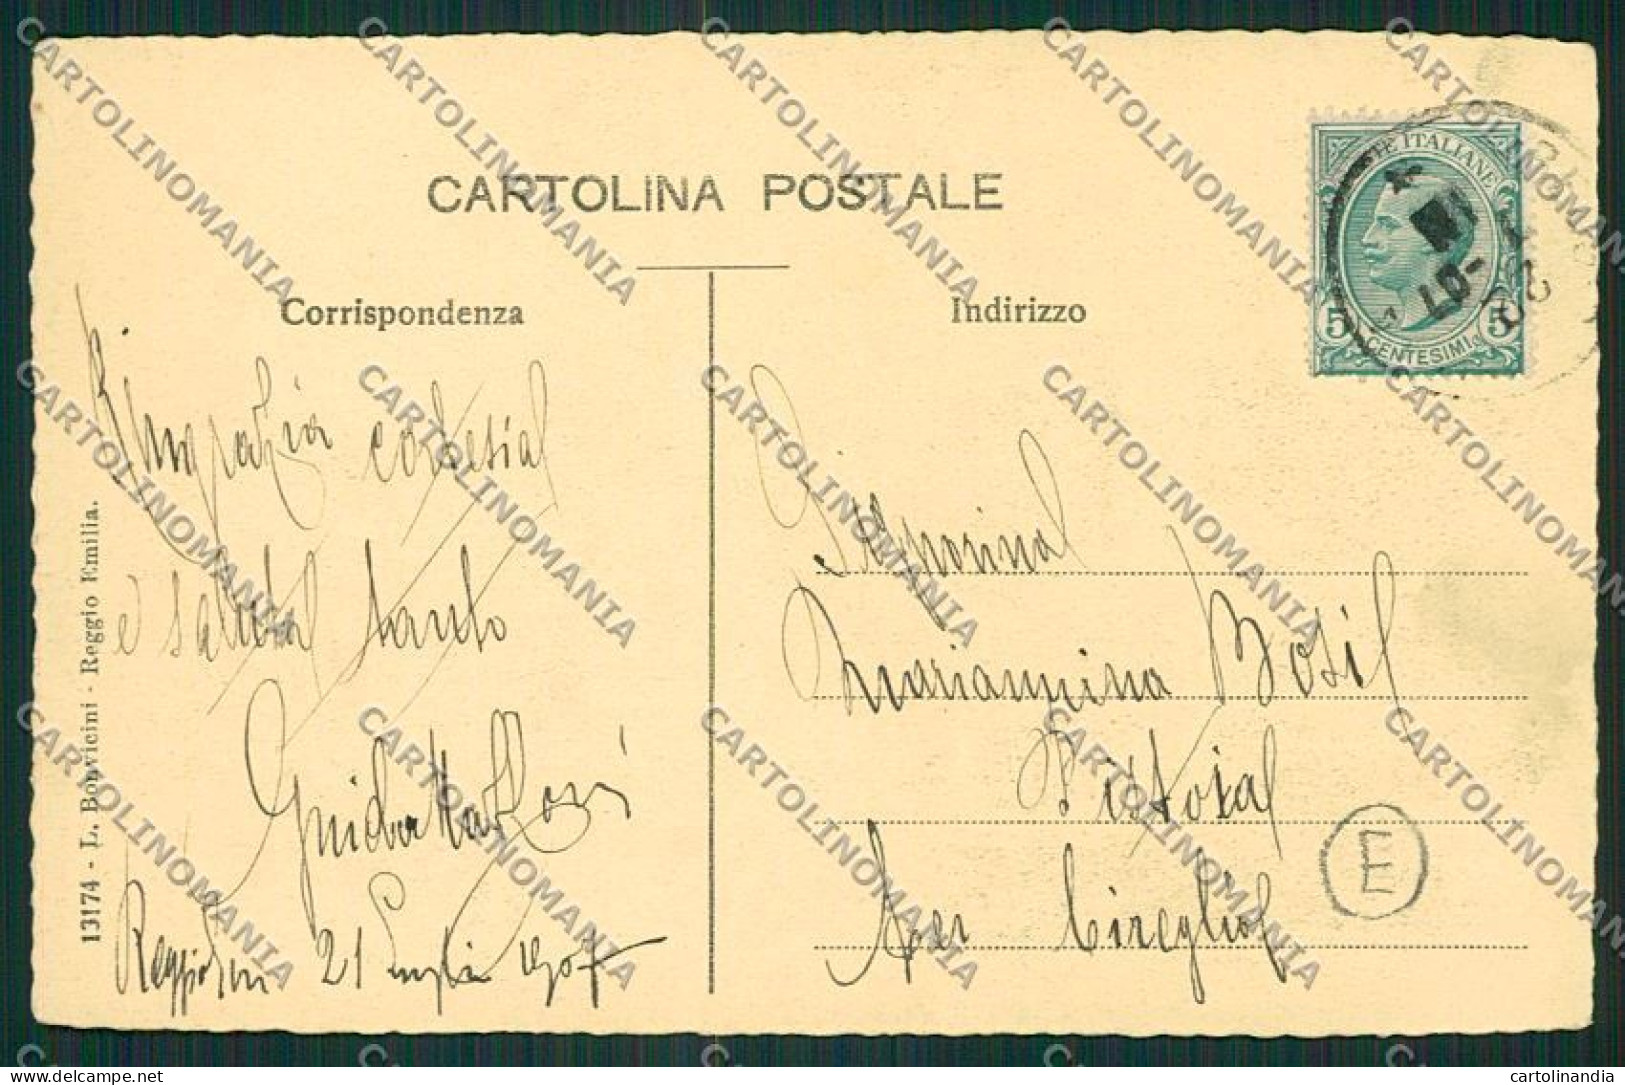 CARTOLINA POSTALE
Corrispondenza
Ringrazia
e saluta tanto
Guido Mazzoni
21 Luglio 1907
13174 - L. Bonvicini - Reggio Emilia.
Indirizzo
POSTE ITALIANE
5 5
CENTESIMI
Signorina
Mariannina Bosi
Pistoia
per Cireglio
E
CARTOLINOMANIA
cartolinandia